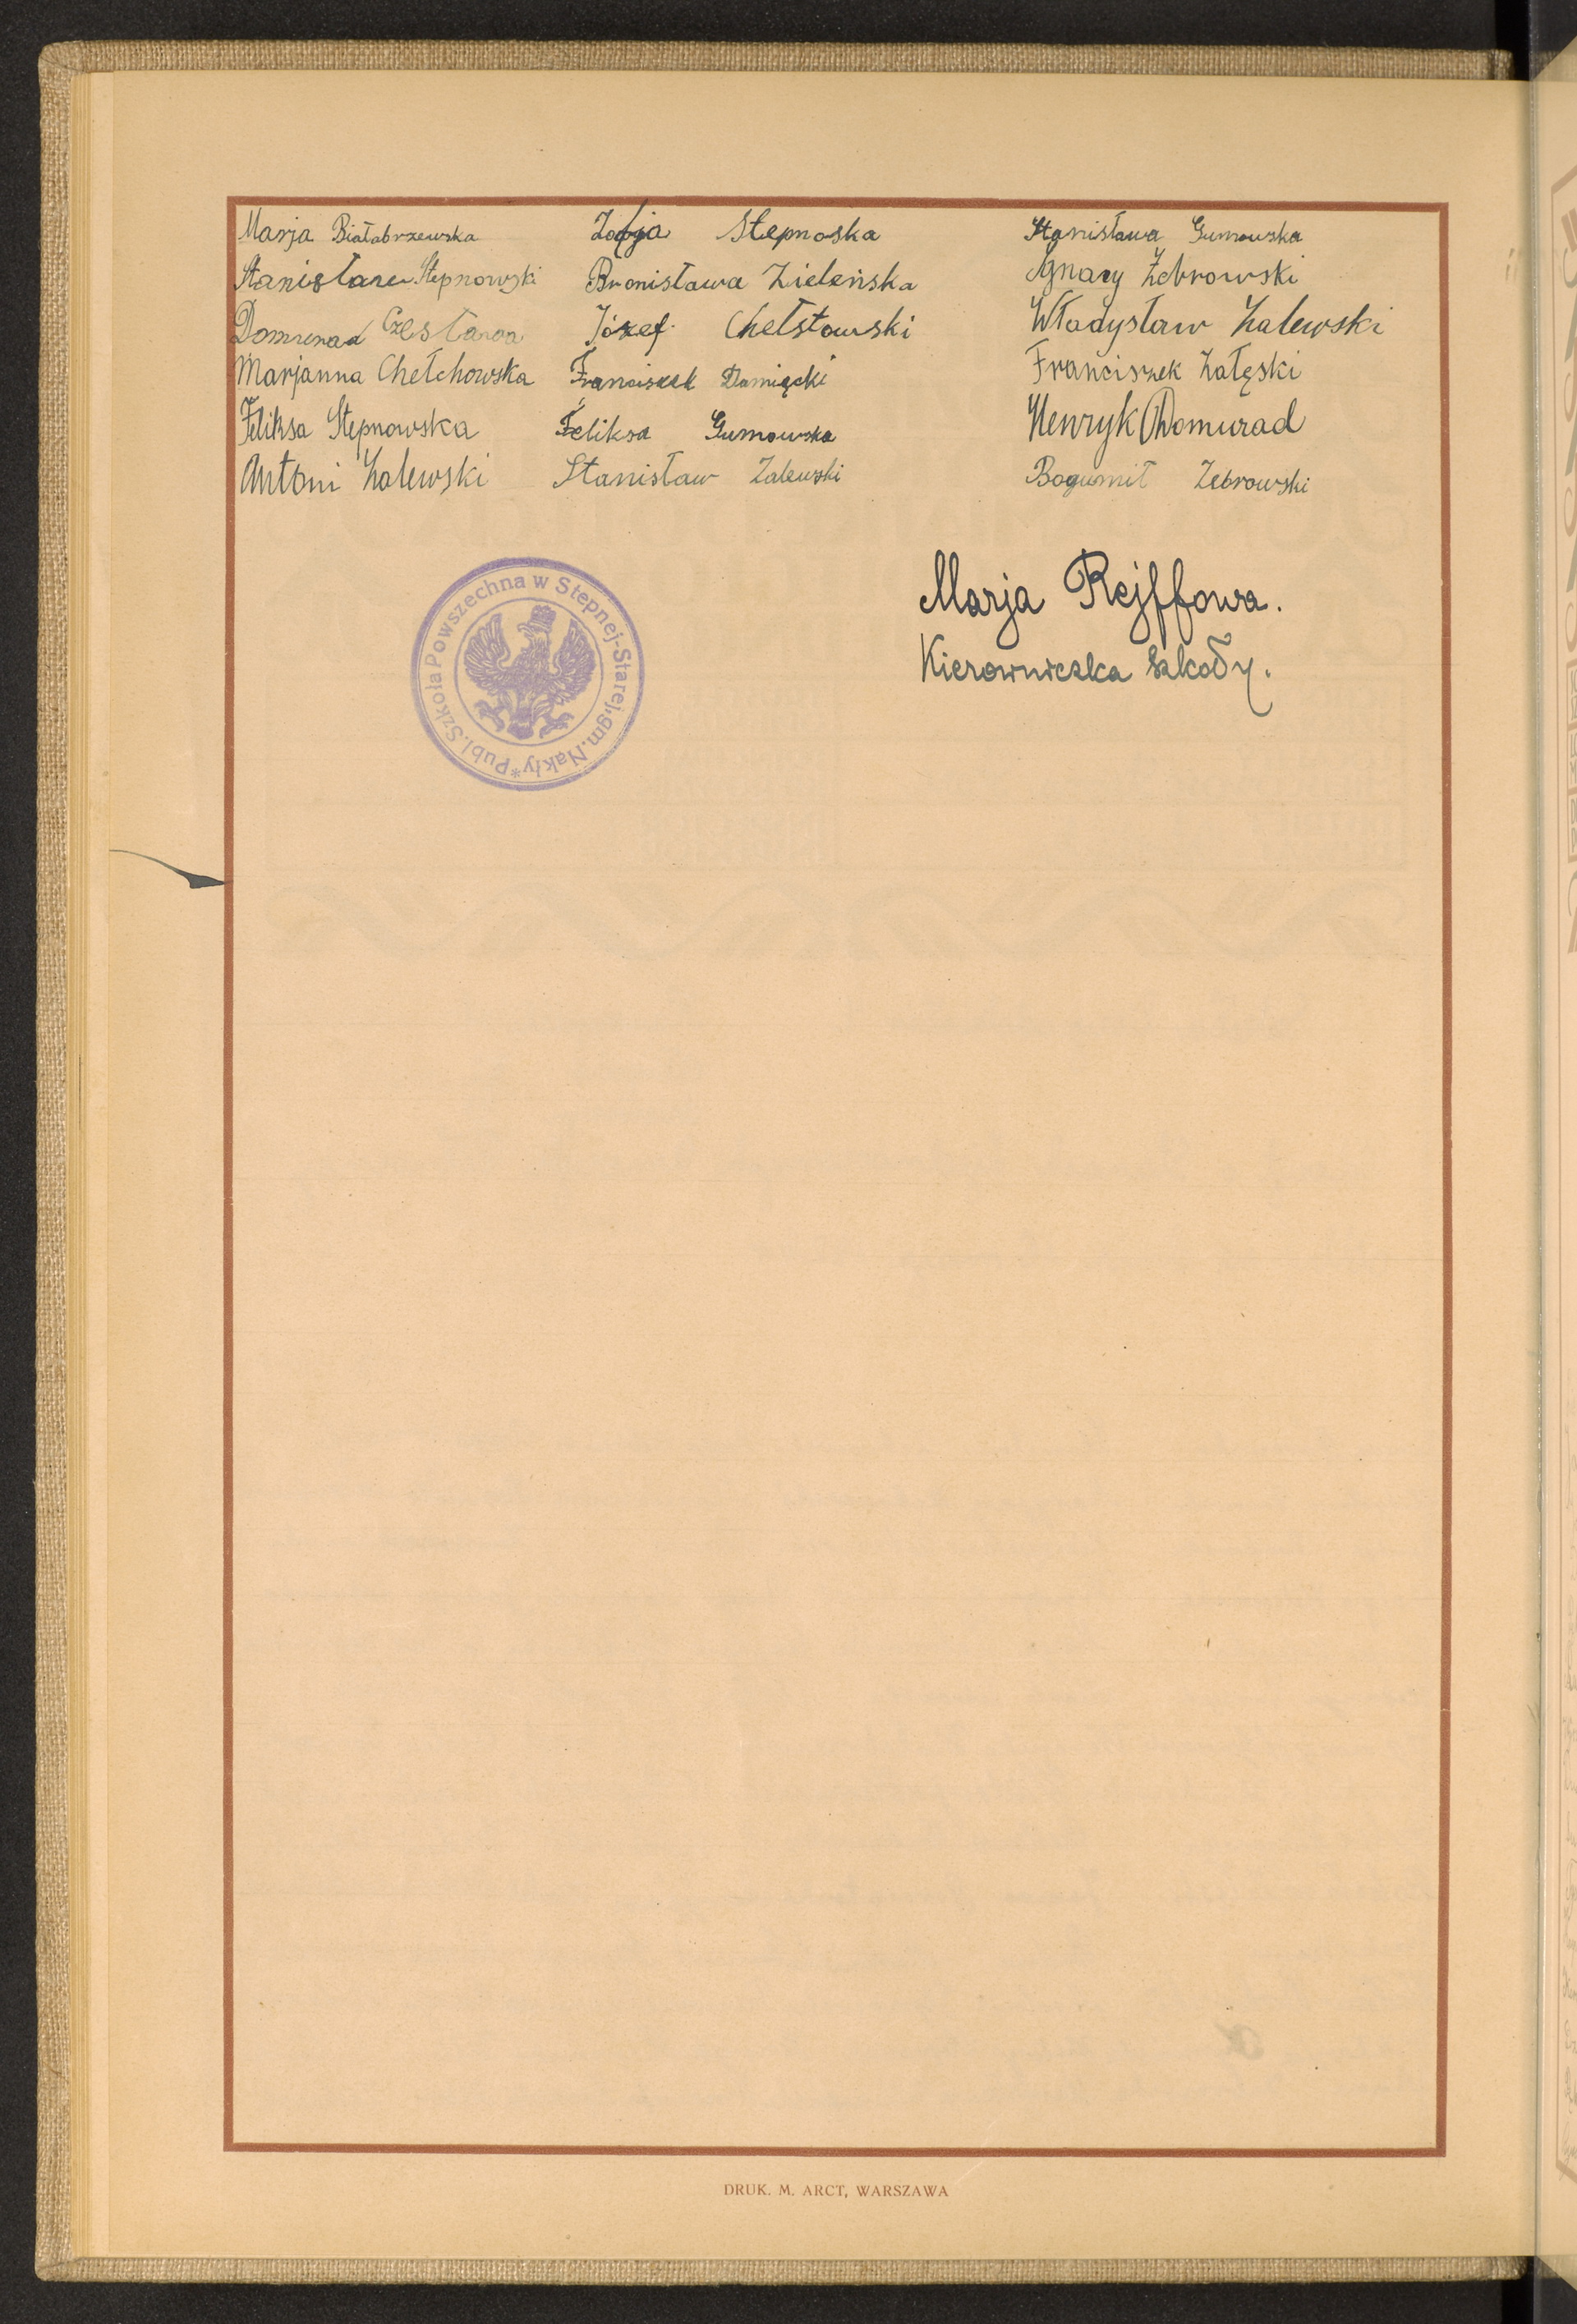 Marja Białabrzewska Zofja Stepnoska Stanisława Gumowska
Stanisław Stepnowski Bronisława Zieleńska Ignacy Żebrowski
Domurad Czesława Józef Chełstowski Władysław Zalewski
Marjanna Chełchowska Franciszek Damięcki Franciszek Załęski
Feliksa Stepnowska Feliksa Gumowska Henryk Domurad
Antoni Zalewski Stanisław Zalewski Bogumił Żebrowski
Marja Rejffowa.
Kierowniczka szkoły.
Publ. Szkoła Powszechna w Stepnej-Starej, gm. Nakły *
DRUK. M. ARCT, WARSZAWA